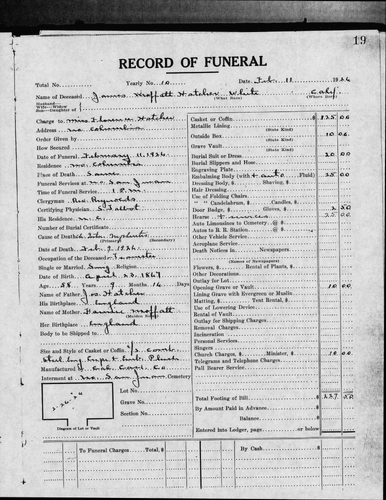 19
RECORD OF FUNERAL
Total No. Yearly No. 10 Date Feb. 11 1926
Name of Deceased James Moffatt Hatcher White Calif.
(What Race) (Where Born)
Husband—
Wife—Widow
Son—Daughter of
Charge to Miss Florence Hatcher
Address no. Columbia
Order Given by
How Secured
Date of Funeral February 11, 1926.
Residence no. Columbia
Place of Death Same
Funeral Services at San Juan
Time of Funeral Service 1 P.M.
Clergyman Rev. Reynolds
Certifying Physician Talbot
His Residence n. c.
Number of Burial Certificate
Cause of Death
(Primary) (Secondary)
Date of Death Feb. 9, 1926.
Occupation of the Deceased Teamster
Single or Married Sing Religion
Date of Birth April 23, 1867
Age 58 Years 9 Months 16 Days
Name of Father Jos Hatcher
His Birthplace England
Name of Mother Fannie Moffatt
(Maiden Name)
Her Birthplace England
Body to be Shipped to
Size and Style of Casket or Coffin
Plush
Manufactured by Co
Interment at San Juan Cemetery
Lot No.
Grave No.
Section No.
Diagram of Lot or Vault
Casket or Coffin $ 125 00
Metallic Lining
(State Kind)
Outside Box 10 00
(State Kind)
Grave Vault
(State Kind)
Burial Suit or Dress 20 00
Burial Slippers and Hose
Engraving Plate
Embalming Body (with + auto Fluid) 25 00
Dressing Body, $
Hair Dressing, $
Use of Folding Chairs
" " Candelabrum, $ Candles, $
Door Badge, $ Gloves, $ 2 50
Hearse + services 25 00
Auto Limousines to Cemetery @ $
Autos to R. R. Station @ $
Other Vehicle Service
Aeroplane Service
Death Notices in Newspapers
(Names of Newspapers)
Flowers, $ Rental of Plants, $
Other Decorations
Outlay for Lot
Opening Grave or Vault 10 00
Lining Grave with Evergreen or Muslin
Matting, $ Tent Rental, $
Use of Lowering Device
Rental of Vault
Outlay for Shipping Charges
Removal Charges
Incineration
Personal Services
Singers
Church Charges, $ Minister, $ 10 00
Telegrams and Telephone Charges
Pall Bearer Service
Total Footing of Bill $ 227 50
By Amount Paid in Advance
Balance
Entered into Ledger, page or below.
To Funeral Charges Total $ By Cash $